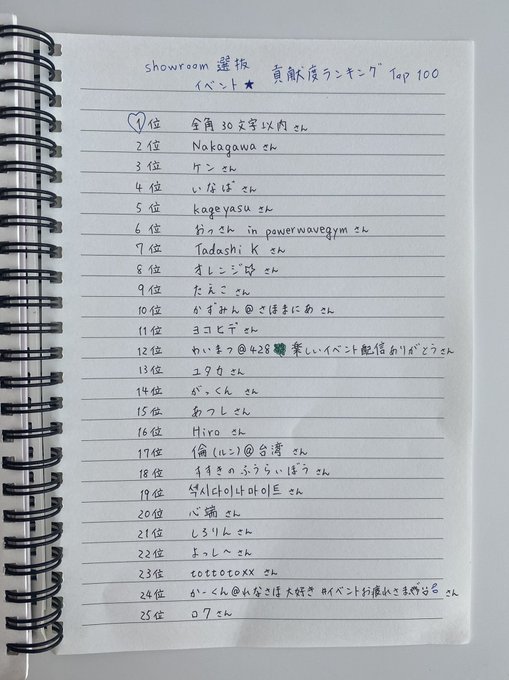 showroom 選抜 貢献度ランキング Top 100
イベント★
1位 全角30文字以内さん
2位 Nakagawaさん
3位 ケンさん
4位 いなばさん
5位 kageyasuさん
6位 おっさん in powerwavegymさん
7位 Tadashi Kさん
8位 オレンジ☆さん
9位 たえこさん
10位 かずみん@さほまにあさん
11位 ヨコヒデさん
12位 わいまつ@428 楽しいイベント配信ありがとうさん
13位 ユタカさん
14位 がっくんさん
15位 あつしさん
16位 Hiroさん
17位 倫(ルン)@台湾さん
18位 すすきのふうらいぼうさん
19位 섹시다이나마이트さん
20位 心端さん
21位 しろりんさん
22位 よっしーさん
23位 tottotoxxさん
24位 かーくん@れなさほ大好き #イベントお疲れさまさん
25位 ロクさん